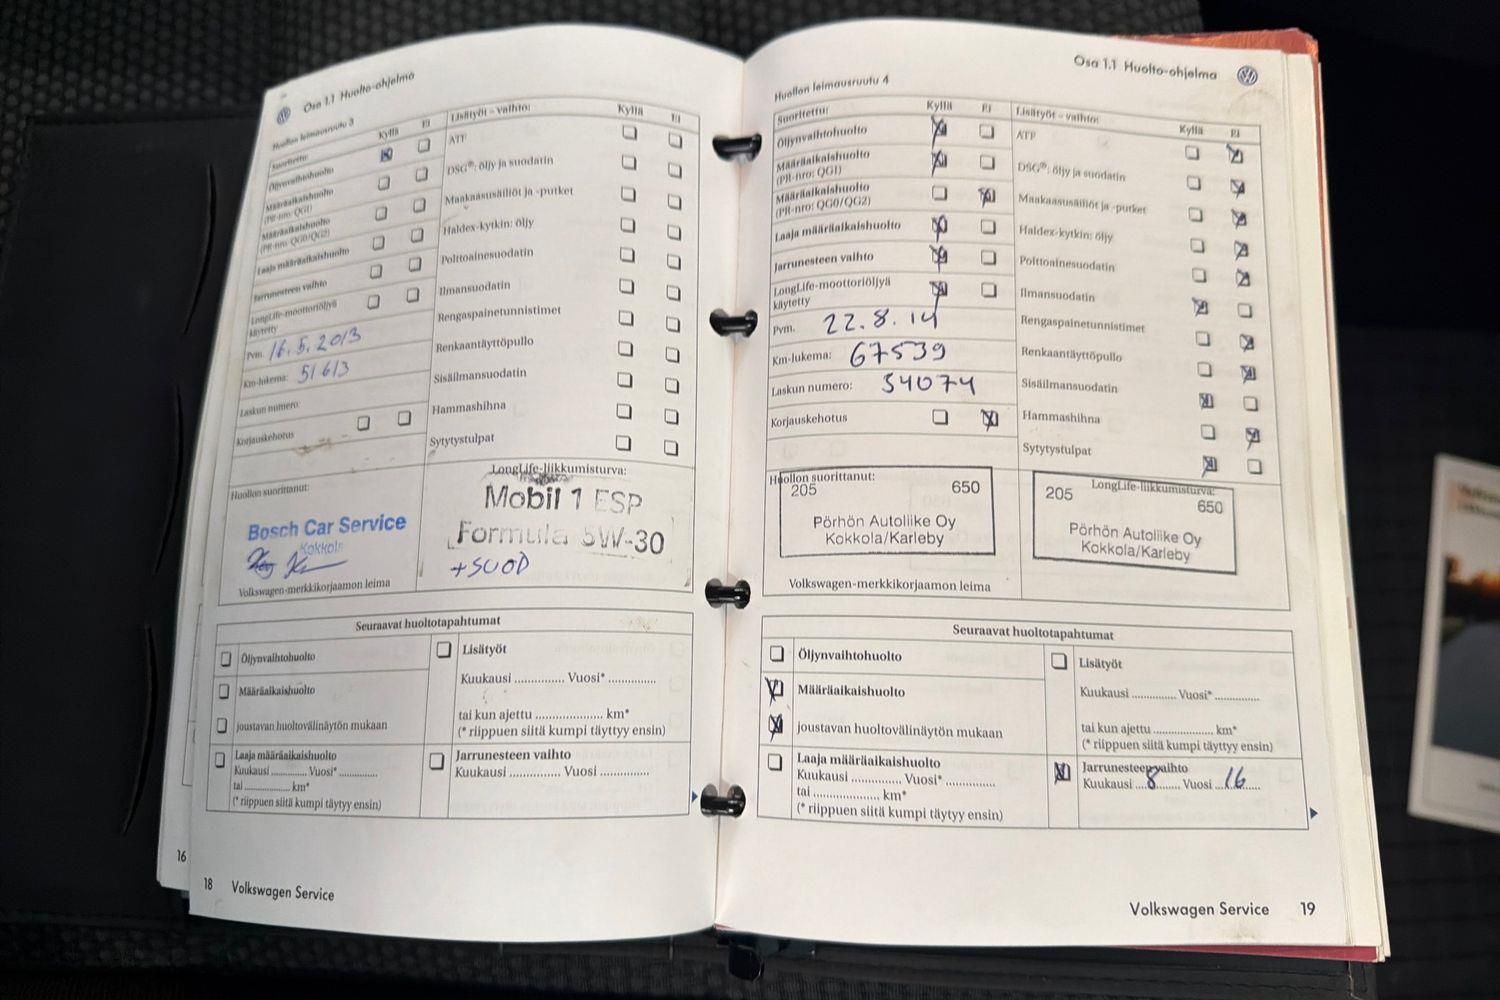 Osa 1.1 Huolto-ohjelma
Huollon leimausruutu 3
Suoritettu:
Kyllä
Ei
Öljynvaihtohuolto
Määräaikaishuolto
(PR-nro: QG1)
Määräaikaishuolto
(PR-nro: QG0/QG2)
Laaja määräaikaishuolto
Jarrunesteen vaihto
LongLife-moottoriöljyä
käytetty
Pvm. 16.5.2013
Km-lukema: 51613
Laskun numero:
Korjauskehotus
Huollon suorittanut:
Bosch Car Service
Kokkola
Volkswagen-merkkikorjaamon leima
Lisätyöt – vaihto:
Kyllä
Ei
ATF
DSG®: öljy ja suodatin
Maakaasusäiliöt ja -putket
Haldex-kytkin: öljy
Polttoainesuodatin
Ilmansuodatin
Rengaspainetunnistimet
Renkaantäyttöpullo
Sisäilmansuodatin
Hammashihna
Sytytystulpat
LongLife-liikkumisturva:
Mobil 1 ESP
Formula 5W-30
+SUOD
Seuraavat huoltotapahtumat
Öljynvaihtohuolto
Määräaikaishuolto
joustavan huoltovälinäytön mukaan
Laaja määräaikaishuolto
Kuukausi ............ Vuosi* .............
tai ................ km*
(* riippuen siitä kumpi täytyy ensin)
Lisätyöt
Kuukausi ............... Vuosi* ..............
tai kun ajettu .................... km*
(* riippuen siitä kumpi täyttyy ensin)
Jarrunesteen vaihto
Kuukausi ............... Vuosi ...............
16
18 Volkswagen Service
Osa 1.1 Huolto-ohjelma
Huollon leimausruutu 4
Suoritettu:
Kyllä
Ei
Öljynvaihtohuolto
Määräaikaishuolto
(PR-nro: QG1)
Määräaikaishuolto
(PR-nro: QG0/QG2)
Laaja määräaikaishuolto
Jarrunesteen vaihto
LongLife-moottoriöljyä
käytetty
Pvm. 22.8.14
Km-lukema: 67539
Laskun numero: 34074
Korjauskehotus
Huollon suorittanut:
205 650
Pörhön Autoliike Oy
Kokkola/Karleby
Volkswagen-merkkikorjaamon leima
Lisätyöt – vaihto:
Kyllä
Ei
ATF
DSG®: öljy ja suodatin
Maakaasusäiliöt ja -putket
Haldex-kytkin: öljy
Polttoainesuodatin
Ilmansuodatin
Rengaspainetunnistimet
Renkaantäyttöpullo
Sisäilmansuodatin
Hammashihna
Sytytystulpat
LongLife-liikkumisturva:
205 650
Pörhön Autoliike Oy
Kokkola/Karleby
Seuraavat huoltotapahtumat
Öljynvaihtohuolto
Määräaikaishuolto
joustavan huoltovälinäytön mukaan
Laaja määräaikaishuolto
Kuukausi ............... Vuosi* ...............
tai .................... km*
(* riippuen siitä kumpi täytyy ensin)
Lisätyöt
Kuukausi ............. Vuosi* .............
tai kun ajettu .................. km*
(* riippuen siitä kumpi täyttyy ensin)
Jarrunesteen vaihto
Kuukausi ...8....... Vuosi ...16.....
Volkswagen Service 19